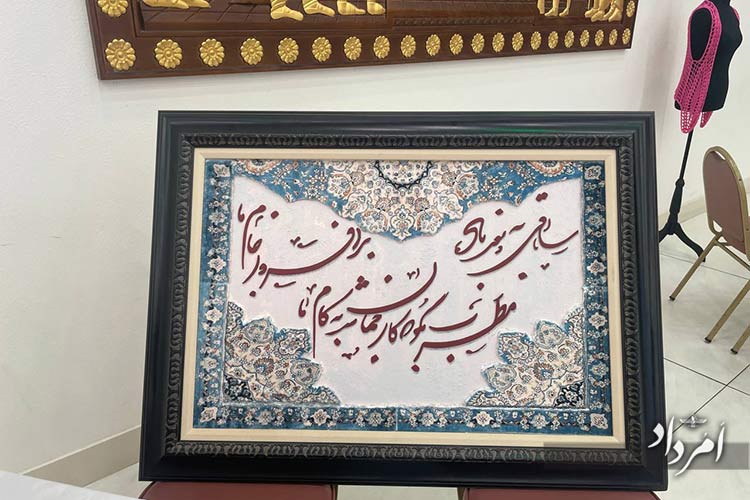 ساقی به نور باده برافروز جام ما
مطرب بگو که کار جهان شد به کام ما
امرداد